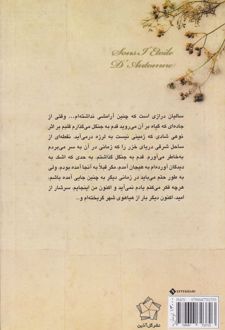 Sous l'Etoile
D'Automne
سالیان درازی است که چنین آرامشی نداشته‌ام... وقتی از
جاده‌ای که گیاه بر آن می‌روید قدم به جنگل می‌گذارم قلبم بر اثر
نوعی شادی که زمینی نیست به لرزه درمی‌آید. نقطه‌ای از
ساحل شرقی دریای خزر را که زمانی در آن به سر می‌بردم
به‌خاطر می‌آورم. قدم به جنگل گذاشتم. به حدی که اشک به
دیدگان آورده‌ام به هیجان آمدم. مگر قبلاً به آنجا آمده بودم. ولی
به طور حتم می‌باید در زمانی دیگر به چنین جایی آمده باشم.
هرچه فکر می‌کنم یادم نمی‌آید و اکنون من اینجایم. سرشار از
امید. اکنون دیگر بار از هیاهوی شهر گریخته‌ام و...
نشر گل آذین